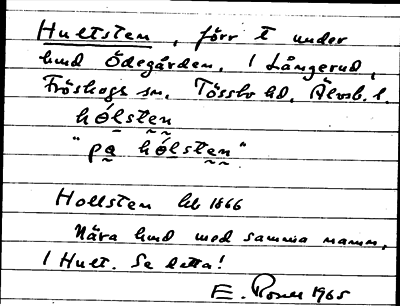 Hultsten, förr t under
hmd Ödegården, i Långerud,
Fröskogs sn. Tössbo hd. Älvsb. l.
hólsten
"pa hólsten"
Hollsten hb 1866
Nära hmd med samma namn,
i Hult. Se detta!
E. Rosell 1965